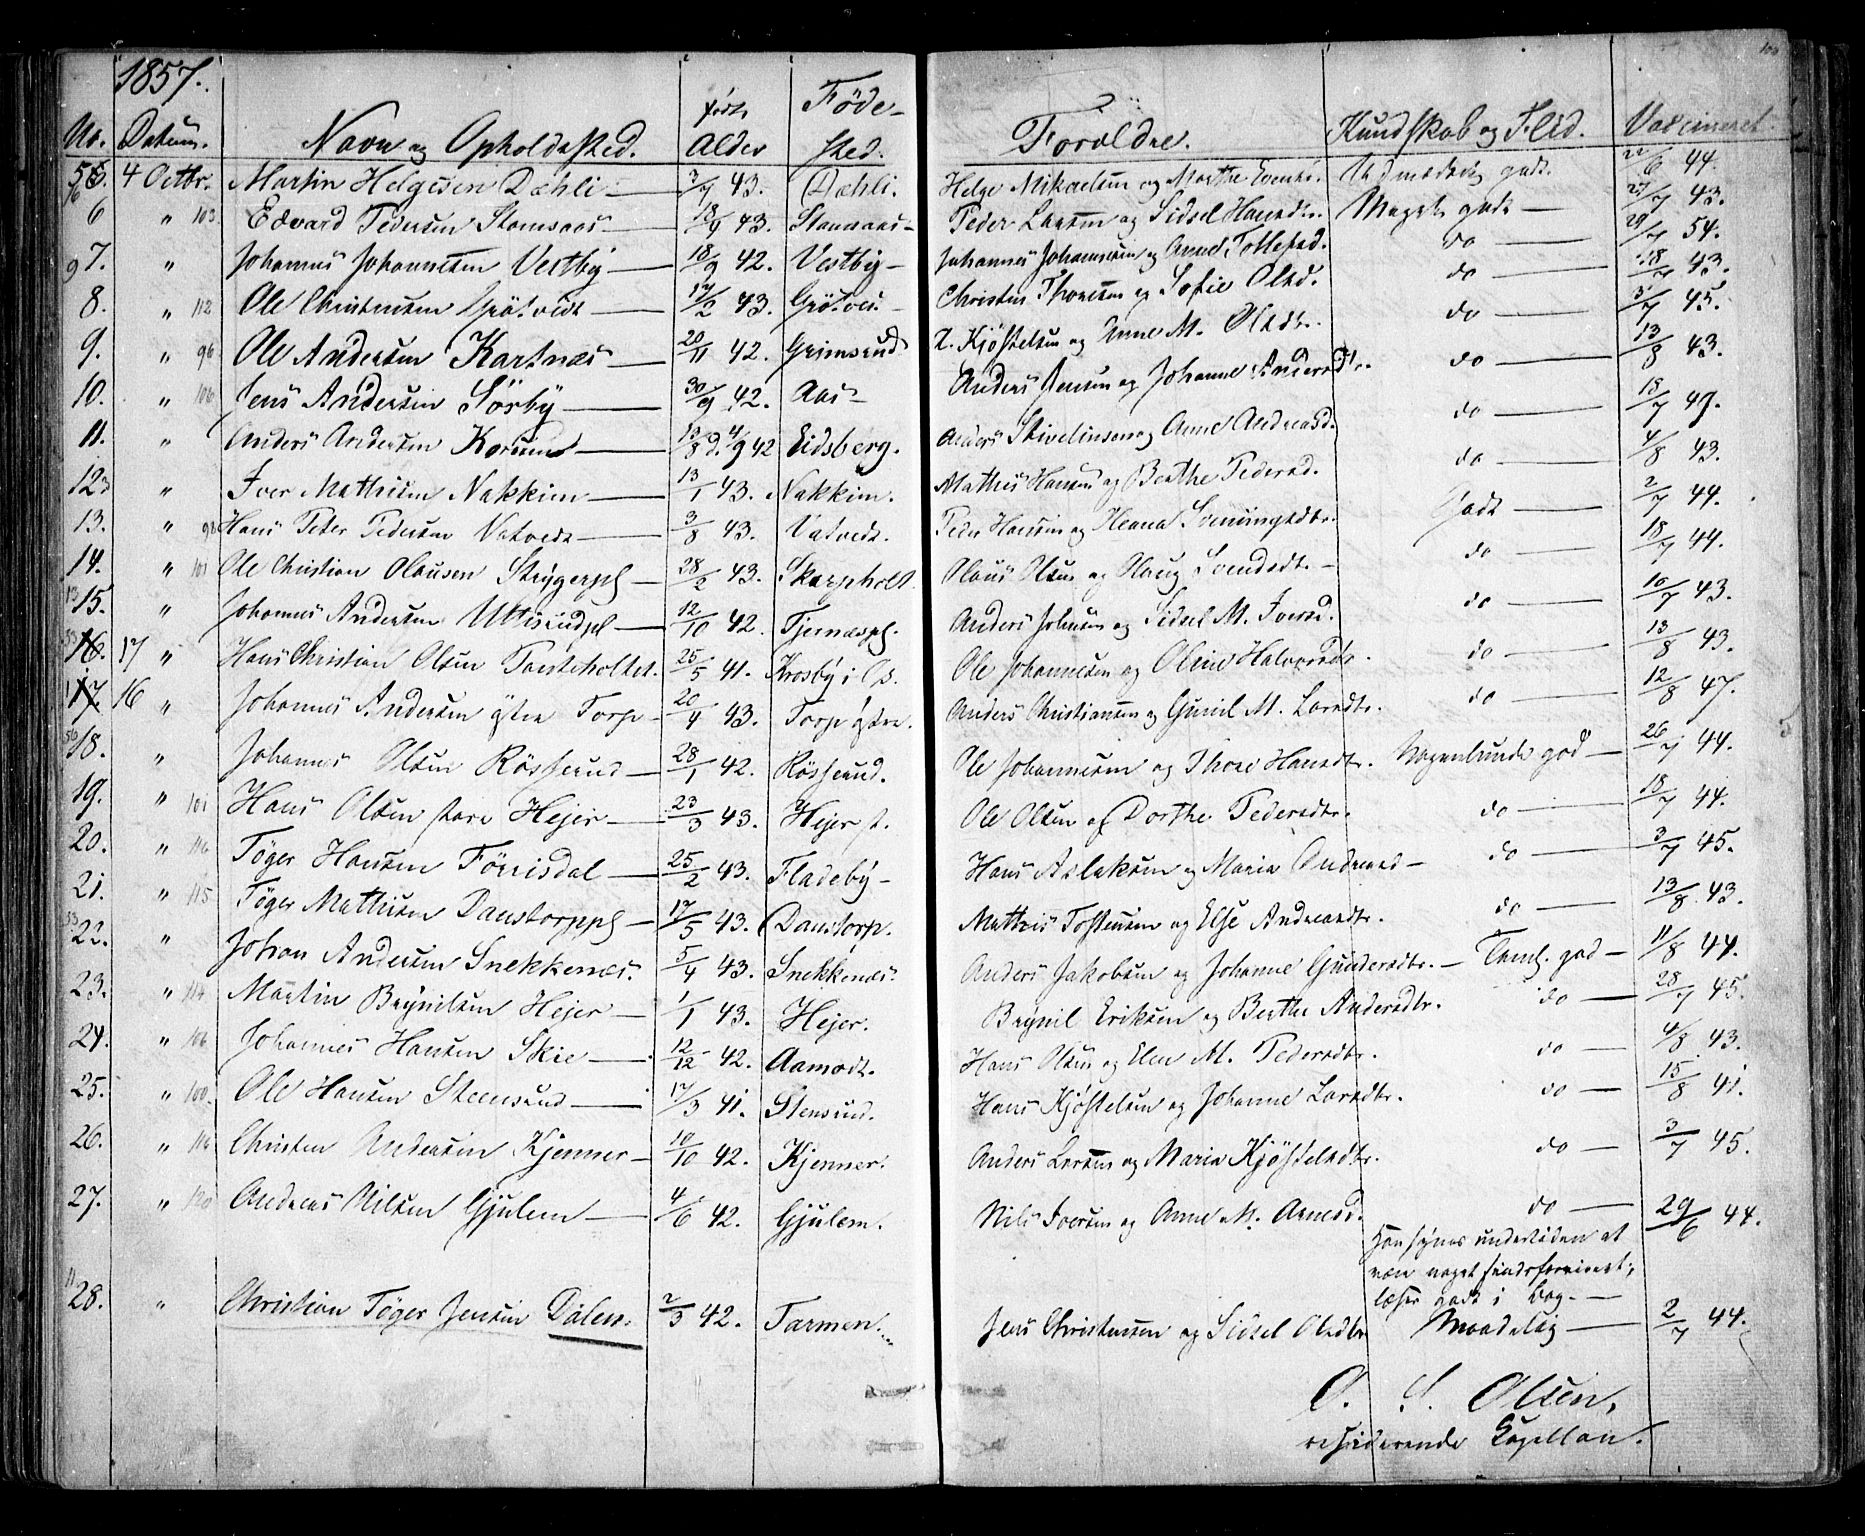 1857.
No. Datum. Navn og Opholdssted. født Alder Fødested. Forældre. Kundskab og Flid. Vaccineret.
5. 4 Octbr. Martin Helgesen Dæhli 3/7 43. Dæhli. Helge Mikaelsen og Marthe godt. 22/6 44.
6 " 103 Edvard Pedersen Stomsaas 18/9 43. Stomsaas Peder Larsen og Sidsel Hansdtr. Meget godt 27/7 43.
7. " Johannes Johannesen Vestby 18/9 42. Vestby Johannes Johannesen og Anne Tollefsd. do 54.
8. " 112 Ole Christensen Grötvedt 17/2 43. Grötved. Christen Thoresen og Sofie Olsd. do 18/7 43.
9. " 96 Ole Andersen Kartnæs 20/11 42. Grimsrud Kjøstelsen og Anne M. Olsdtr. do 3/7 45.
10. " 106 Jens Andersen Sörby 30/9 42. Aas Anders Jensen og Johanne Andersdtr. do 13/8 43.
11. " Anders Andersen 13/8 d. 4/9 42 Eidsberg. Anders og Anne Andreasd. do 18/7 49.
12 " Iver Mathisen Nakkim 13/1 43. Nakkim. Mathis Hansen og Berthe Pedersd. do 4/8 43.
13. " 98 Hans Peter Pedersen Vatvedt 3/8 43. Vatvedt. Peder Hansen og Godt 2/7 44.
14. " 101 Ole Christian Olausen 28/2 43. Skarpholt. Olaus Olsen og Svendsdtr. do 18/7 44.
15. " Johannes Andersen 12/10 42. Tjernæspl. Anders Johnsen og Sidsel M. Iversd. do 10/7 43.
16. 17 " Hans Christian Olsen 25/5 41. Krosby i Os. Ole Johannesen og Oline Halvorsdtr. do 13/8 43.
17. 16 " Johannes Andersen østre Torp 20/4 43. Torp østre. Anders Christiansen og Gunil M. Larsdtr. do 12/8 47.
18. " Johannes Olsen Rösserud 28/1 42. Rösserud. Ole Johannesen og Thore Hansdtr. Nogenlunde god 26/7 44.
19. " 101 Hans Olsen store Hejer 23/3 43. Hejer st. Ole Olsen og Dorthe Pedersdtr. do 18/7 44.
20. " 116 Töger Hansen Förrisdal 25/2 43. Fladeby Hans Aslaksen og Maria Andreasd do 3/7 45.
21. " 115 Töger Mathisen Danstorppl 17/5 43. Danstorp. Mathis Torstensen og Else Andreasdtr. do 13/8 43.
22. " Johan Andersen Snekkenæs 5/4 43. Snekkenæs. Anders Jakobsen og Johanne Gundersdtr. Teml. god 11/8 44.
23. " 114 Martin Brynilsen Hejer 1/1 43. Hejer. Brynil Eriksen og Berthe Andersdtr. do 28/7 45.
24. " 106 Johannes Hansen Skie 12/12 42. Aamodt. Hans Olsen og Elen M. Pedersdtr. do 4/8 43.
25. " 100 Ole Hansen Steensrud 17/3 41. Stensrud. Hans Kjøstelsen og Johanne Larsdtr. do 15/8 41.
26. " 116 Christen Andersen Kjenner 10/10 42. Kjenner. Anders Larsen og Maria Kjøstelsdtr. do 3/7 45.
27. " 120 Andreas Nilsen Gjulem 4/6 42. Gjulem. Nils Iversen og Anne M. Arnesd. do 29/6 44.
Han synes undertiden at
være noget sindsforvirret;
læser godt i Bog.
28. " Christian Töger Jensen Dalen. 2/3 42. Tarmen. Jens Christensen og Sidsel Olsdtr Maadelig 2/7 44.
O. S. Olsen,
residerende Capellan.